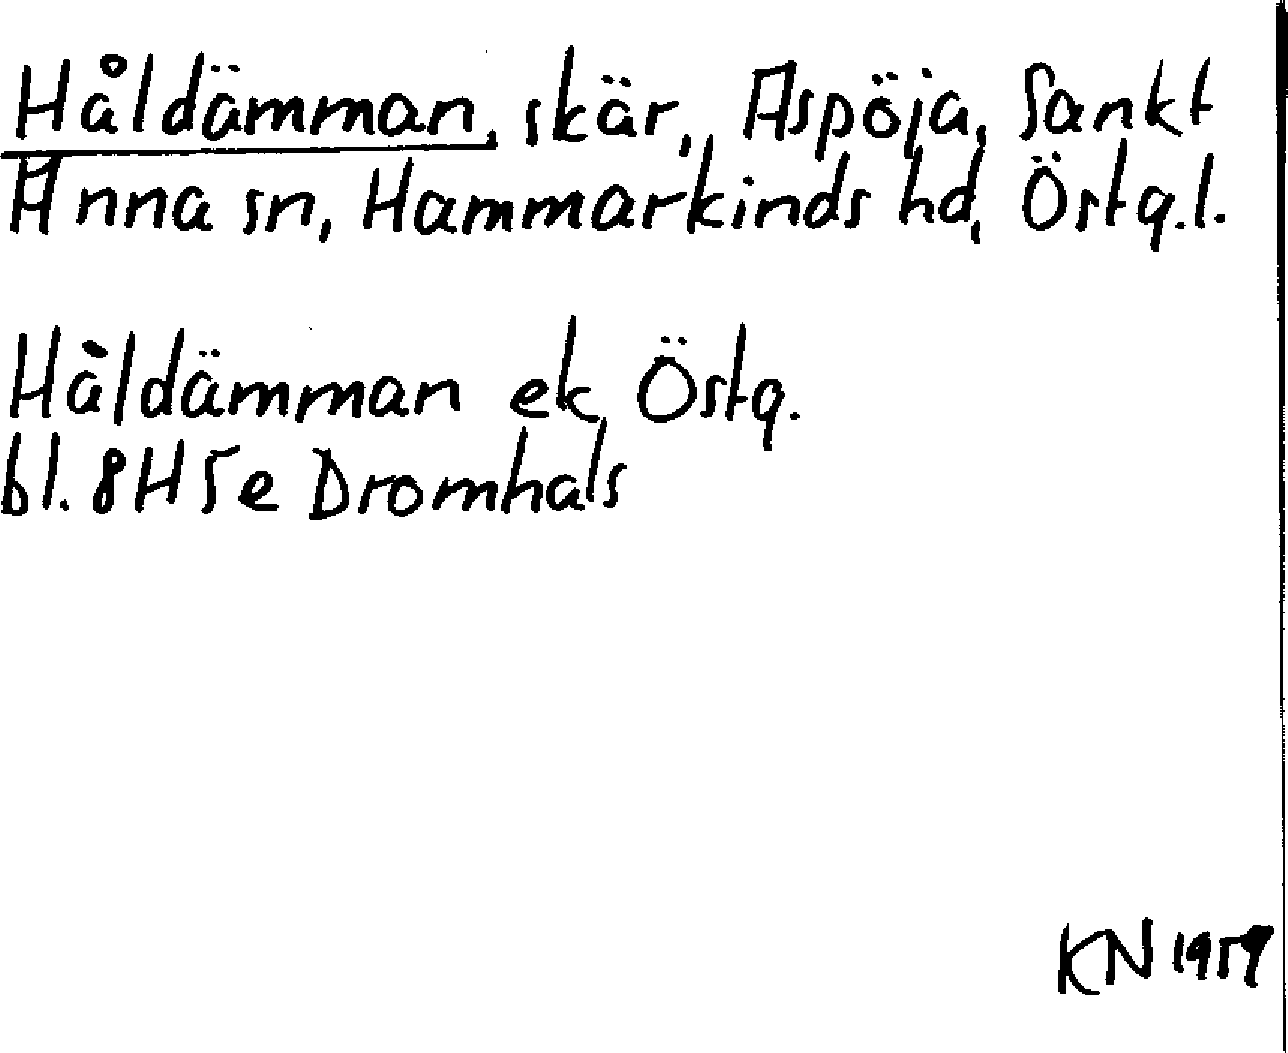 Håldämman, skär, Aspöja, Sankt
Anna sn, Hammarkinds hd, Östg.l.
Håldämman ek Östg.
bl. 8H5e Dromhals
KN 1959